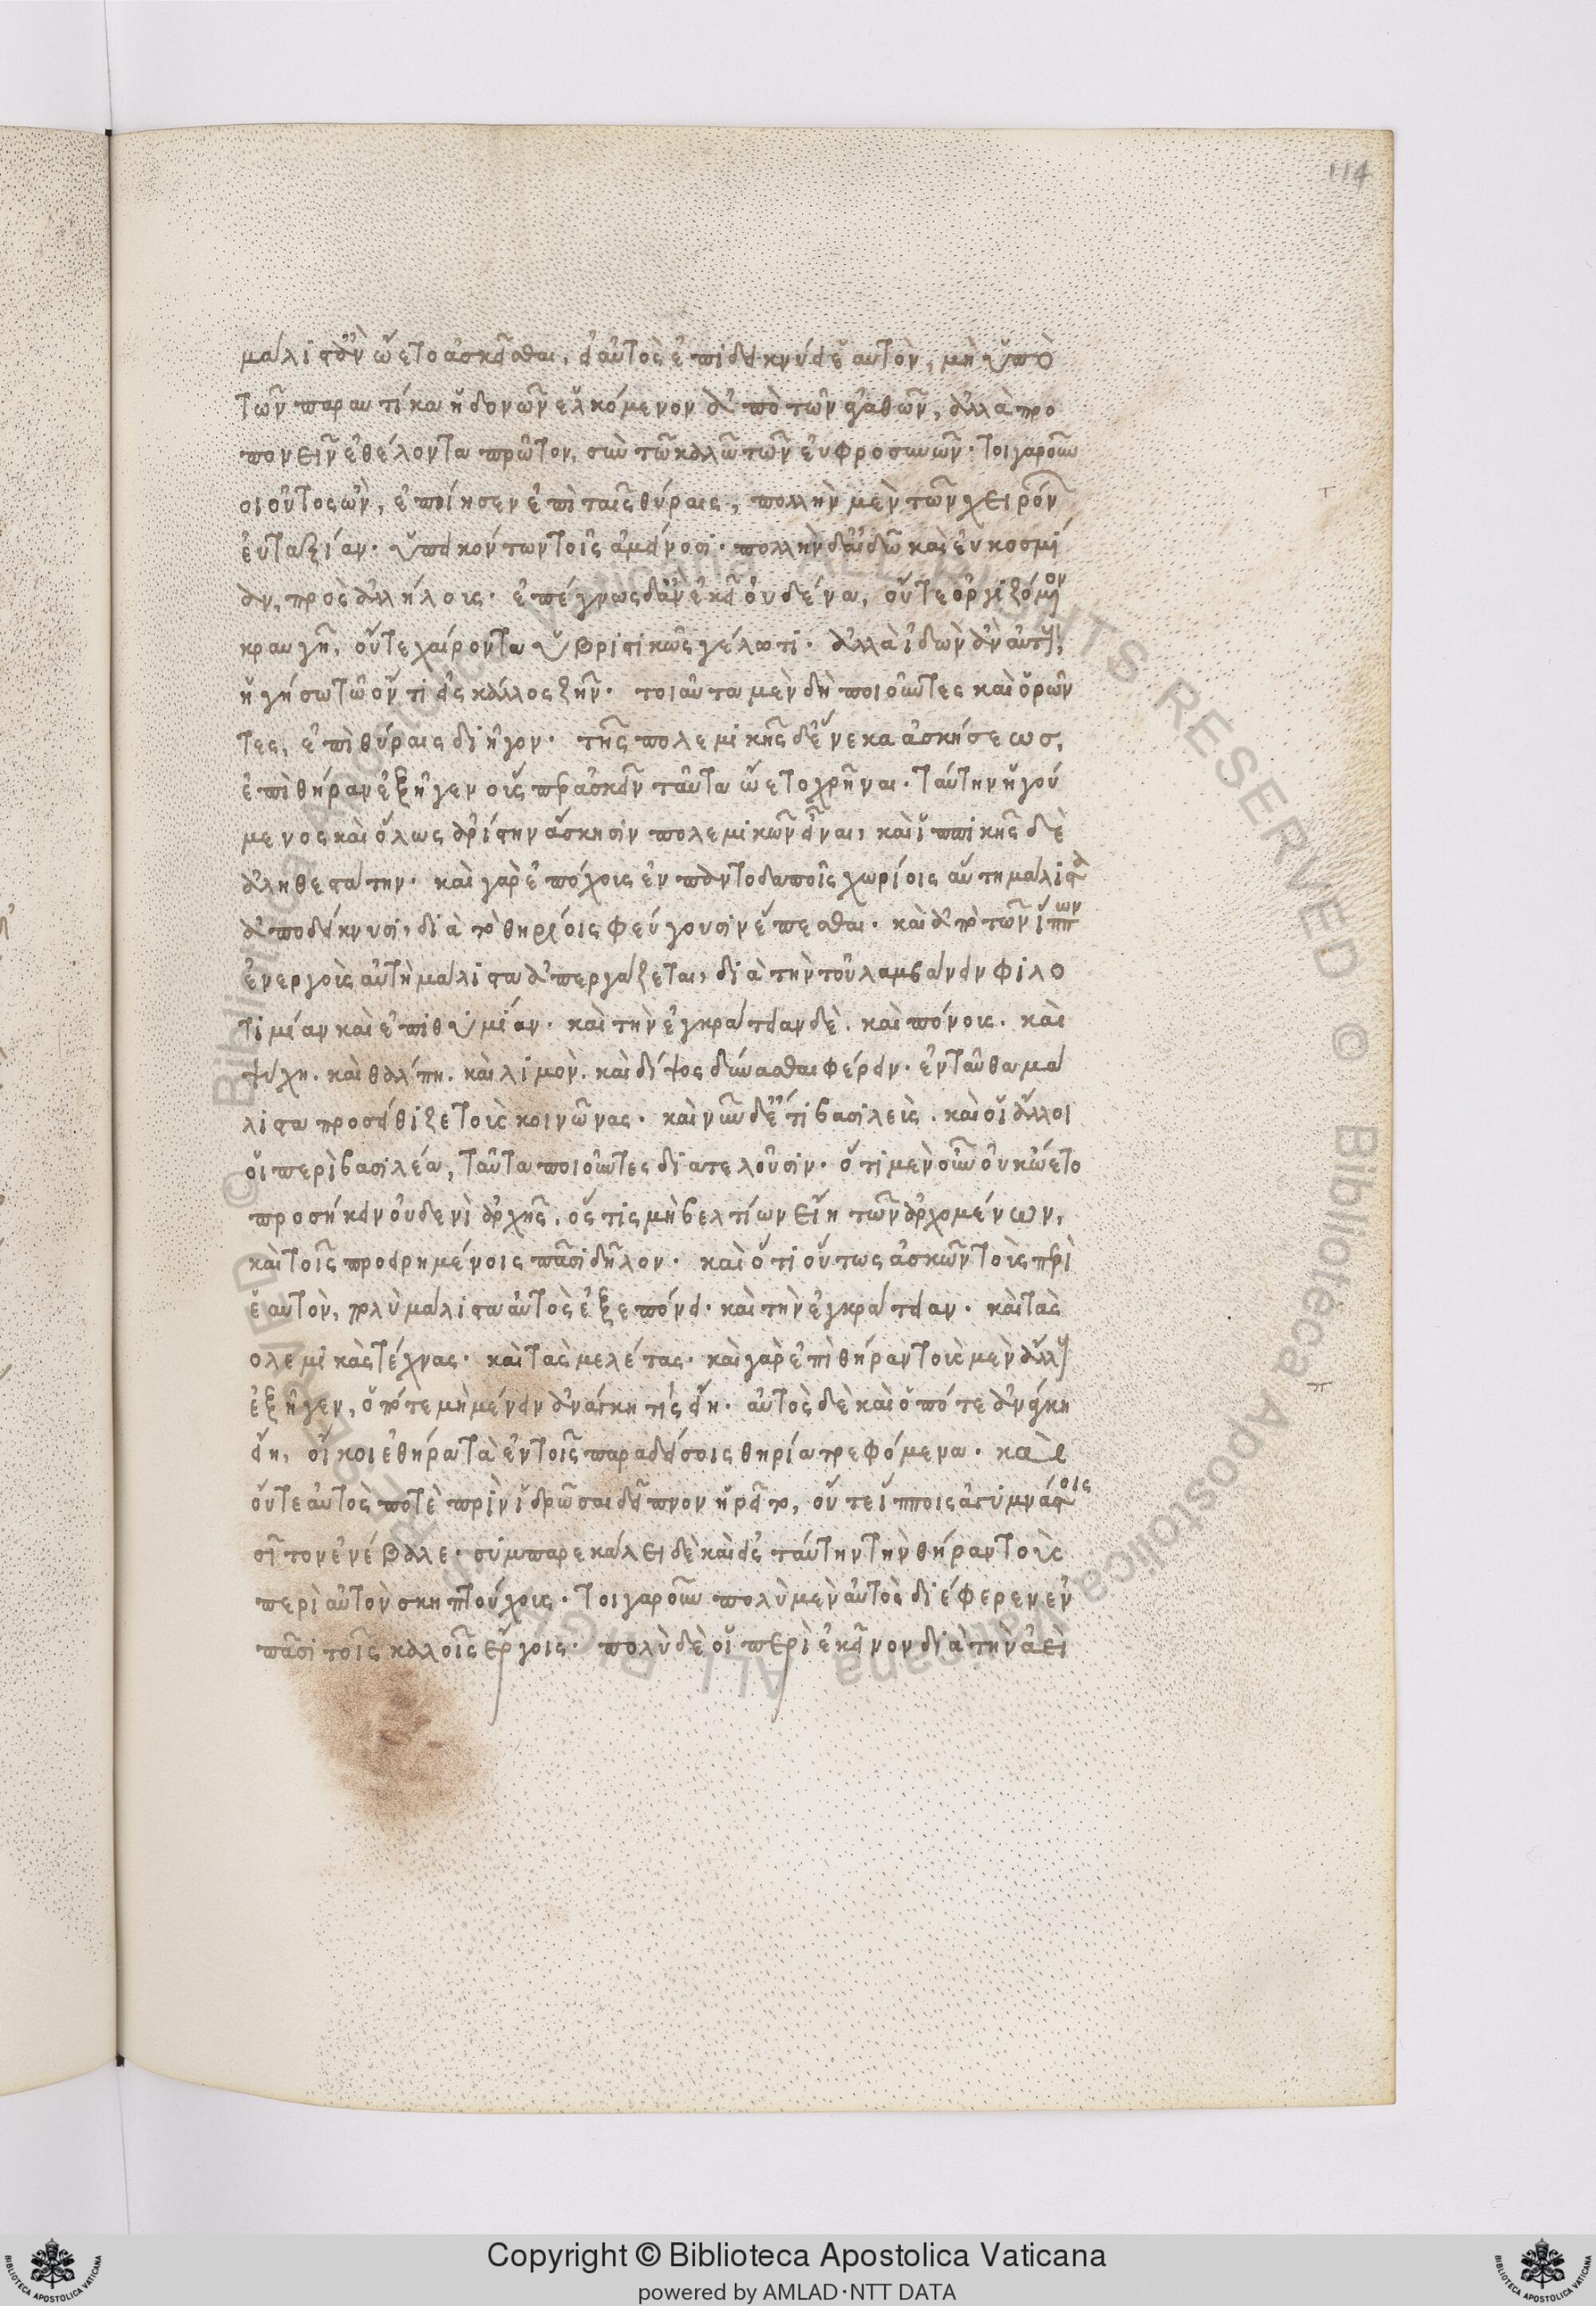 114
μάλιστ' ἂν ὤετο ἀσκεῖσθαι, εἰ αὐτὸς ἐπιδεικνύει ἑαυτὸν, μὴ ὑπὸ
τῶν παραυτίκα ἡδονῶν ἑλκόμενον ἀπὸ τῶν ἀγαθῶν, ἀλλὰ προ
πονεῖν ἐθέλοντα πρῶτον, σὺν τῶ καλῶ τῶν εὐφροσυνῶν· τοιγαροῦν
οιοῦτος ὢν, ἐποίησεν ἐπὶ ταῖς θύραις, πολλὴν μὲν τῶν χειρόν
εὐταξίαν· ὑπεικόντων τοῖς ἀμείνοσι· πολλὴν δ' αἰδῶ καὶ εὐκοσμί
αν, πρὸς ἀλλήλοις· ἐπέγνως δ' ἂν ἐκεῖ οὐδένα, οὔτε ὀργιζόμενον
κραυγῆ, οὔτε χαίροντα ὑβριστικῶς γέλωτι· ἀλλὰ ἰδὼν ἂν αὐτοὺς,
ἡγήσω τῶ ὄντι εἰς κάλλος ζῆν· τοιαῦτα μὲν δὴ ποιοῦντες καὶ ὁρῶν
τες, ἐπὶ θύραις διῆγον· τῆς πολεμικῆς δ' ἕνεκα ἀσκήσεως,
ἐπὶ θήραν ἐξῆγεν οὕσπερ ἀσκεῖν ταῦτα ὤετο χρῆναι· ταύτην ἡγού
μενος καὶ ὅλως ἀρίστην ἄσκησιν πολεμικῶν εἶναι, καὶ ἱππικῆς δὲ
ἀληθεστάτην· καὶ γὰρ ἐπόχους ἐν παντοδαποῖς χωρίοις αὕτη μάλιστα
ἀποδείκνυσι, διὰ τὸ θηρίοις φεύγουσιν ἕπεσθαι· καὶ ἀπὸ τῶν ἵππων
ἐνεργοὺς αὐτὴ μάλιστα ἀπεργάζεται, διὰ τὴν τοῦ λαμβάνειν φιλο
τιμίαν καὶ ἐπιθυμίαν· καὶ τὴν ἐγκράτειαν δὲ. καὶ πόνους. καὶ
ψύχη. καὶ θάλπη. καὶ λιμὸν. καὶ δίψος δύνασθαι φέρειν· ἐνταῦθα μά
λιστα προσείθιζε τοὺς κοινῶνας· καὶ νῦν δ' ἔτι βασιλεὺς. καὶ οἱ ἄλλοι
οἱ περὶ βασιλέα, ταῦτα ποιοῦντες διατελοῦσιν· ὅτι μὲν οὖν οὐκ ὤετο
προσήκειν οὐδενὶ ἀρχῆς, ὅστις μὴ βελτίων εἴη τῶν ἀρχομένων,
καὶ τοῖς προειρημένοις πᾶσι δῆλον· καὶ ὅτι οὕτως ἀσκῶν τοὺς περὶ
ἑαυτὸν, πολὺ μάλιστα αὐτὸς ἐξεπόνει· καὶ τὴν ἐγκράτειαν· καὶ τὰς
ολεμικὰς τέχνας· καὶ τὰς μελέτας· καὶ γὰρ ἐπὶ θήραν τοὺς μὲν ἄλλους
ἐξῆγεν, ὁπότε μὴ μένειν ἀνάγκη τίς εἴη· αὐτὸς δὲ καὶ ὁπότε ἀνάγκη
εἴη, οἴκοι ἐθήρα τὰ ἐν τοῖς παραδείσοις θηρία τρεφόμενα· καὶ
οὔτε αὐτὸς ποτὲ πρὶν ἱδρῶσαι δεῖπνον ἡρεῖτο, οὔτε ἵπποις ἀγυμνάστοις
σῖτον ἐνέβαλε· συμπαρεκάλει δὲ καὶ εἰς ταύτην τὴν θήραν τοὺς
περὶ αὐτὸν σκηπτούχους· τοιγαροῦν πολὺ μὲν αὐτὸς διέφερεν ἐν
πᾶσι τοῖς καλοῖς ἔργοις· πολὺ δὲ οἱ περὶ ἐκεῖνον διὰ τὴν ἀεὶ
τ
π
© Biblioteca Apostolica Vaticana ALL RIGHTS RESERVED
Copyright © Biblioteca Apostolica Vaticana
powered by AMLAD·NTT DATA